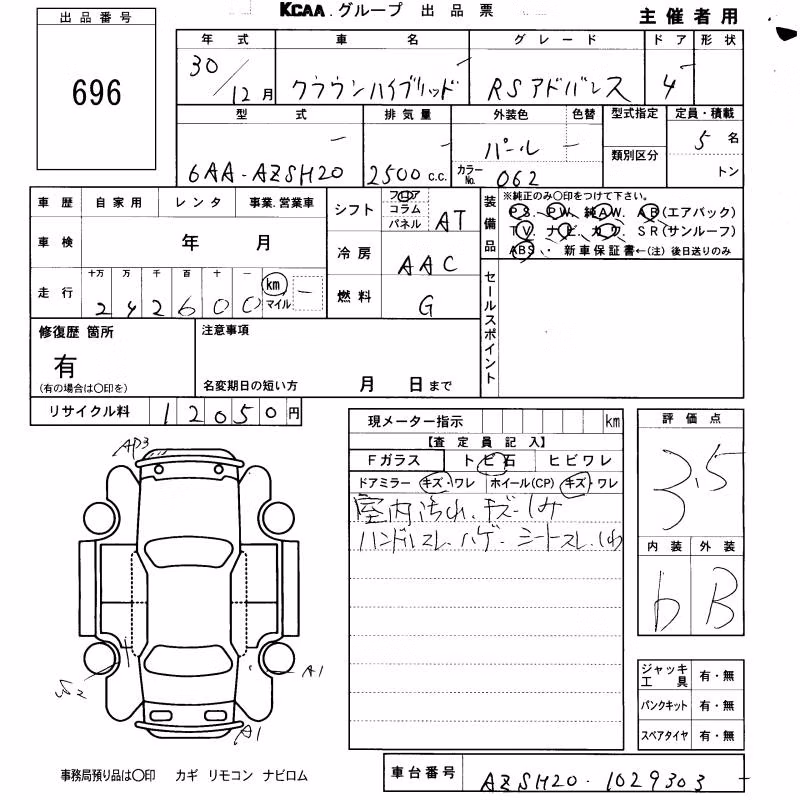 KCAA.グループ 出品票
主催者用
出品番号
696
年式 車名 グレード ドア 形状
30/12月 クラウンハイブリッド RSアドバンス 4
型式 排気量 外装色 色替 型式指定 定員・積載
6AA-AZSH20 2500 C.C. パール 5名
カラーNo. 062
類別区分 トン
車歴 自家用 レンタ 事業.営業車
車検 年 月
走行 十万 万 千 百 十 一
242600 km マイル
シフト フロア コラム パネル AT
冷房 AAC
燃料 G
装備品
※純正のみ〇印をつけて下さい。
PS. PW. 純AW. AB(エアバック)
TV. ナビ. カワ. SR(サンルーフ)
ABS. 新車保証書←(注)後日送りのみ
セールスポイント
修復歴 箇所
有
(有の場合は〇印を)
注意事項
名変期日の短い方 月 日まで
リサイクル料 12050円
現メーター指示 km
【査定員記入】
Fガラス トビ石 ヒビワレ
ドアミラー キズ・ワレ ホイール(CP) キズ・ワレ
室内汚れ.キズ.シミ
ハンドルスレ.ハゲ.シートスレ.シワ
評価点
3.5
内装 外装
b B
AP3
A1
A1
ジャッキ工具 有・無
パンクキット 有・無
スペアタイヤ 有・無
事務局預り品は〇印 カギ リモコン ナビロム
車台番号 AZSH20-1029303